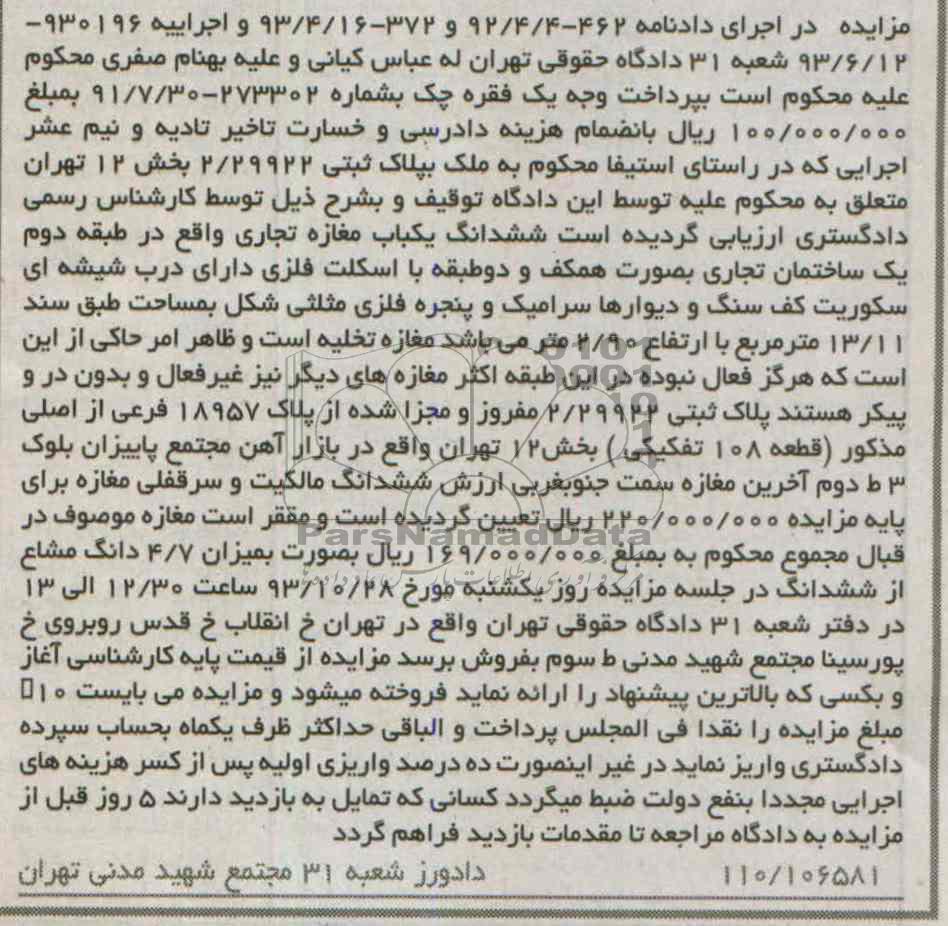 مزایده در اجرای دادنامه ۴۶۲-۹۲/۴/۴ و ۳۷۲-۹۳/۴/۱۶ و اجراییه ۹۳۰۱۹۶-
۹۳/۶/۱۲ شعبه ۳۱ دادگاه حقوقی تهران له عباس کیانی و علیه بهنام صفری محکوم
علیه محکوم است بپرداخت وجه یک فقره چک بشماره ۲۷۳۳۰۲-۹۱/۷/۳۰ بمبلغ
۱۰۰/۰۰۰/۰۰۰ ریال بانضمام هزینه دادرسی و خسارت تاخیر تادیه و نیم عشر
اجرایی که در راستای استیفا محکوم به ملک بپلاک ثبتی ۲/۲۹۹۲۲ بخش ۱۲ تهران
متعلق به محکوم علیه توسط این دادگاه توقیف و بشرح ذیل توسط کارشناس رسمی
دادگستری ارزیابی گردیده است ششدانگ یکباب مغازه تجاری واقع در طبقه دوم
یک ساختمان تجاری بصورت همکف و دوطبقه با اسکلت فلزی دارای درب شیشه ای
سکوریت کف سنگ و دیوارها سرامیک و پنجره فلزی مثلثی شکل بمساحت طبق سند
۱۳/۱۱ مترمربع با ارتفاع ۲/۹۰ متر می باشد مغازه تخلیه است و ظاهر امر حاکی از این
است که هرگز فعال نبوده در این طبقه اکثر مغازه های دیگر نیز غیرفعال و بدون در و
پیکر هستند پلاک ثبتی ۲/۲۹۹۲۲ مفروز و مجزا شده از پلاک ۱۸۹۵۷ فرعی از اصلی
مذکور (قطعه ۱۰۸ تفکیکی) بخش۱۲ تهران واقع در بازار آهن مجتمع پاییزان بلوک
۳ ط دوم آخرین مغازه سمت جنوبغربی ارزش ششدانگ مالکیت و سرقفلی مغازه برای
پایه مزایده ۲۲۰/۰۰۰/۰۰۰ ریال تعیین گردیده است و مققر است مغازه موصوف در
قبال مجموع محکوم به بمبلغ ۱۶۹/۰۰۰/۰۰۰ ریال بصورت بمیزان ۴/۷ دانگ مشاع
از ششدانگ در جلسه مزایده روز یکشنبه مورخ ۹۳/۱۰/۲۸ ساعت ۱۲/۳۰ الی ۱۳
در دفتر شعبه ۳۱ دادگاه حقوقی تهران واقع در تهران خ انقلاب خ قدس روبروی خ
پورسینا مجتمع شهید مدنی ط سوم بفروش برسد مزایده از قیمت پایه کارشناسی آغاز
و بکسی که بالاترین پیشنهاد را ارائه نماید فروخته میشود و مزایده می بایست ۱۰
مبلغ مزایده را نقدا فی المجلس پرداخت و الباقی حداکثر ظرف یکماه بحساب سپرده
دادگستری واریز نماید در غیر اینصورت ده درصد واریزی اولیه پس از کسر هزینه های
اجرایی مجددا بنفع دولت ضبط میگردد کسانی که تمایل به بازدید دارند ۵ روز قبل از
مزایده به دادگاه مراجعه تا مقدمات بازدید فراهم گردد
۱۱۰/۱۰۶۵۸۱ دادورز شعبه ۳۱ مجتمع شهید مدنی تهران
ParsNamadData